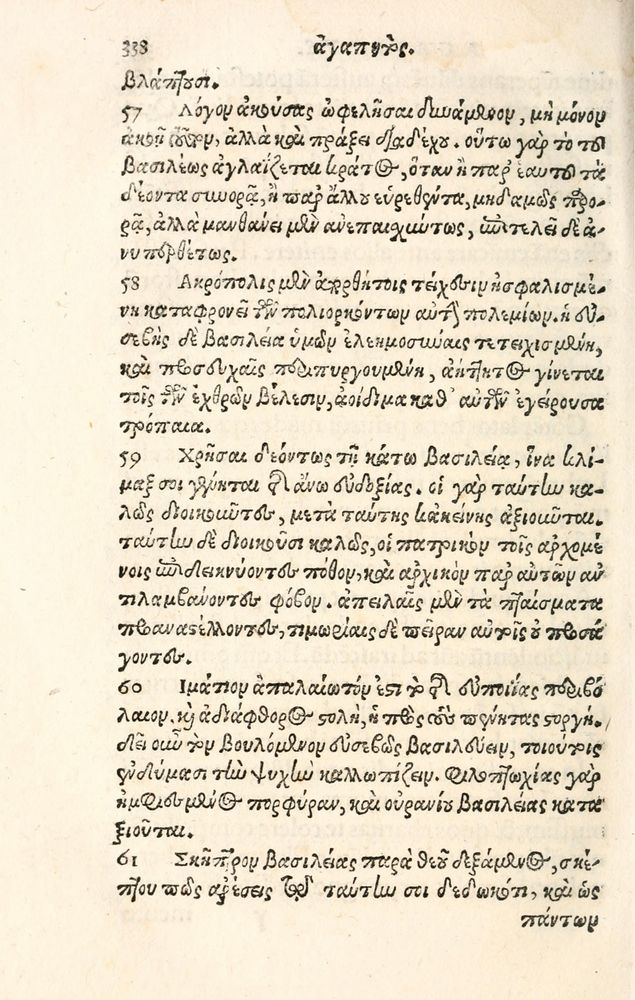 338 ἀγαπητὸς.
βλάπτουσι.
57 Λόγον ἀκούσας ὠφελῆσαι δυνάμενον, μὴ μόνον
ἀκοῇ ἀλλὰ καὶ πράξει διαδέχου. οὕτω γὰρ τὸ τοῦ
βασιλέως ἀγλαΐζεται κράτος, ὅταν ἢ παρ' ἑαυτοῦ τὰ
δέοντα συνορᾷ, ἢ παρ' ἄλλου εὑρεθέντα, μηδαμῶς προ-
ρᾷ, ἀλλὰ μανθάνει μὲν ἀνεπαισχύντως, ἐπιτελεῖ δὲ ἀ-
νυπερθέτως.
58 Ακρόπολις μὲν ἀρρήτοις τείχεσιν ἠσφαλισμέ-
νη καταφρονεῖ τῶν πολιορκούντων αὐτὴν πολεμίων. ἡ δὲ εὐ-
σεβὴς δὲ βασιλεία ὑμῶν ἐλεημοσύναις τετειχισμένη,
καὶ προσευχαῖς περιπυργουμένη, ἀήττητος γίνεται
τοῖς τῶν ἐχθρῶν βέλεσιν, ἀοίδιμα καθ' αὐτῶν ἐγείρουσα
τρόπαια.
59 Χρῆσαι δεόντως τῇ κάτω βασιλείᾳ, ἵνα κλί-
μαξ σοι γένηται τῆς ἄνω εὐδοξίας. οἱ γὰρ ταύτην κα-
λῶς διοικοῦντες, μετὰ ταύτης κἀκείνης ἀξιοῦνται.
ταύτην δὲ διοικοῦσι καλῶς, οἱ πατρικὸν τοῖς ἀρχομέ
νοις ἐπιδεικνύοντες πόθον, καὶ ἀρχικὸν παρ' αὐτῶν ἀν
τιλαμβάνοντες φόβον. ἀπειλαῖς μὲν τὰ πταίσματα
προαναστέλλοντες, τιμωρίαις δὲ πεῖραν αὐτοῖς οὐ προσά
γοντες.
60 Ιμάτιον ἀπαλαίωτόν ἐστι τὸ τῆς εὐποιΐας περιβό
λαιον. καὶ ἀδιάφθορος στολὴ, ἡ πρὸς τοὺς πένητας στοργή.
δεῖ οὖν τὸν βουλόμενον εὐσεβῶς βασιλεύειν, τοιούτοις
ἐνδύμασι τὴν ψυχὴν καλλωπίζειν. φιλοπτωχίας γὰρ
ἠμφιεσμένος πορφύραν, καὶ οὐρανίου βασιλείας κατα
ξιοῦται.
61 Σκῆπτρον βασιλείας παρὰ θεοῦ δεξάμενος, σκέ-
πτου πῶς ἀρέσεις τῷ ταύτην σοι δεδωκότι, καὶ ὡς
πάντων